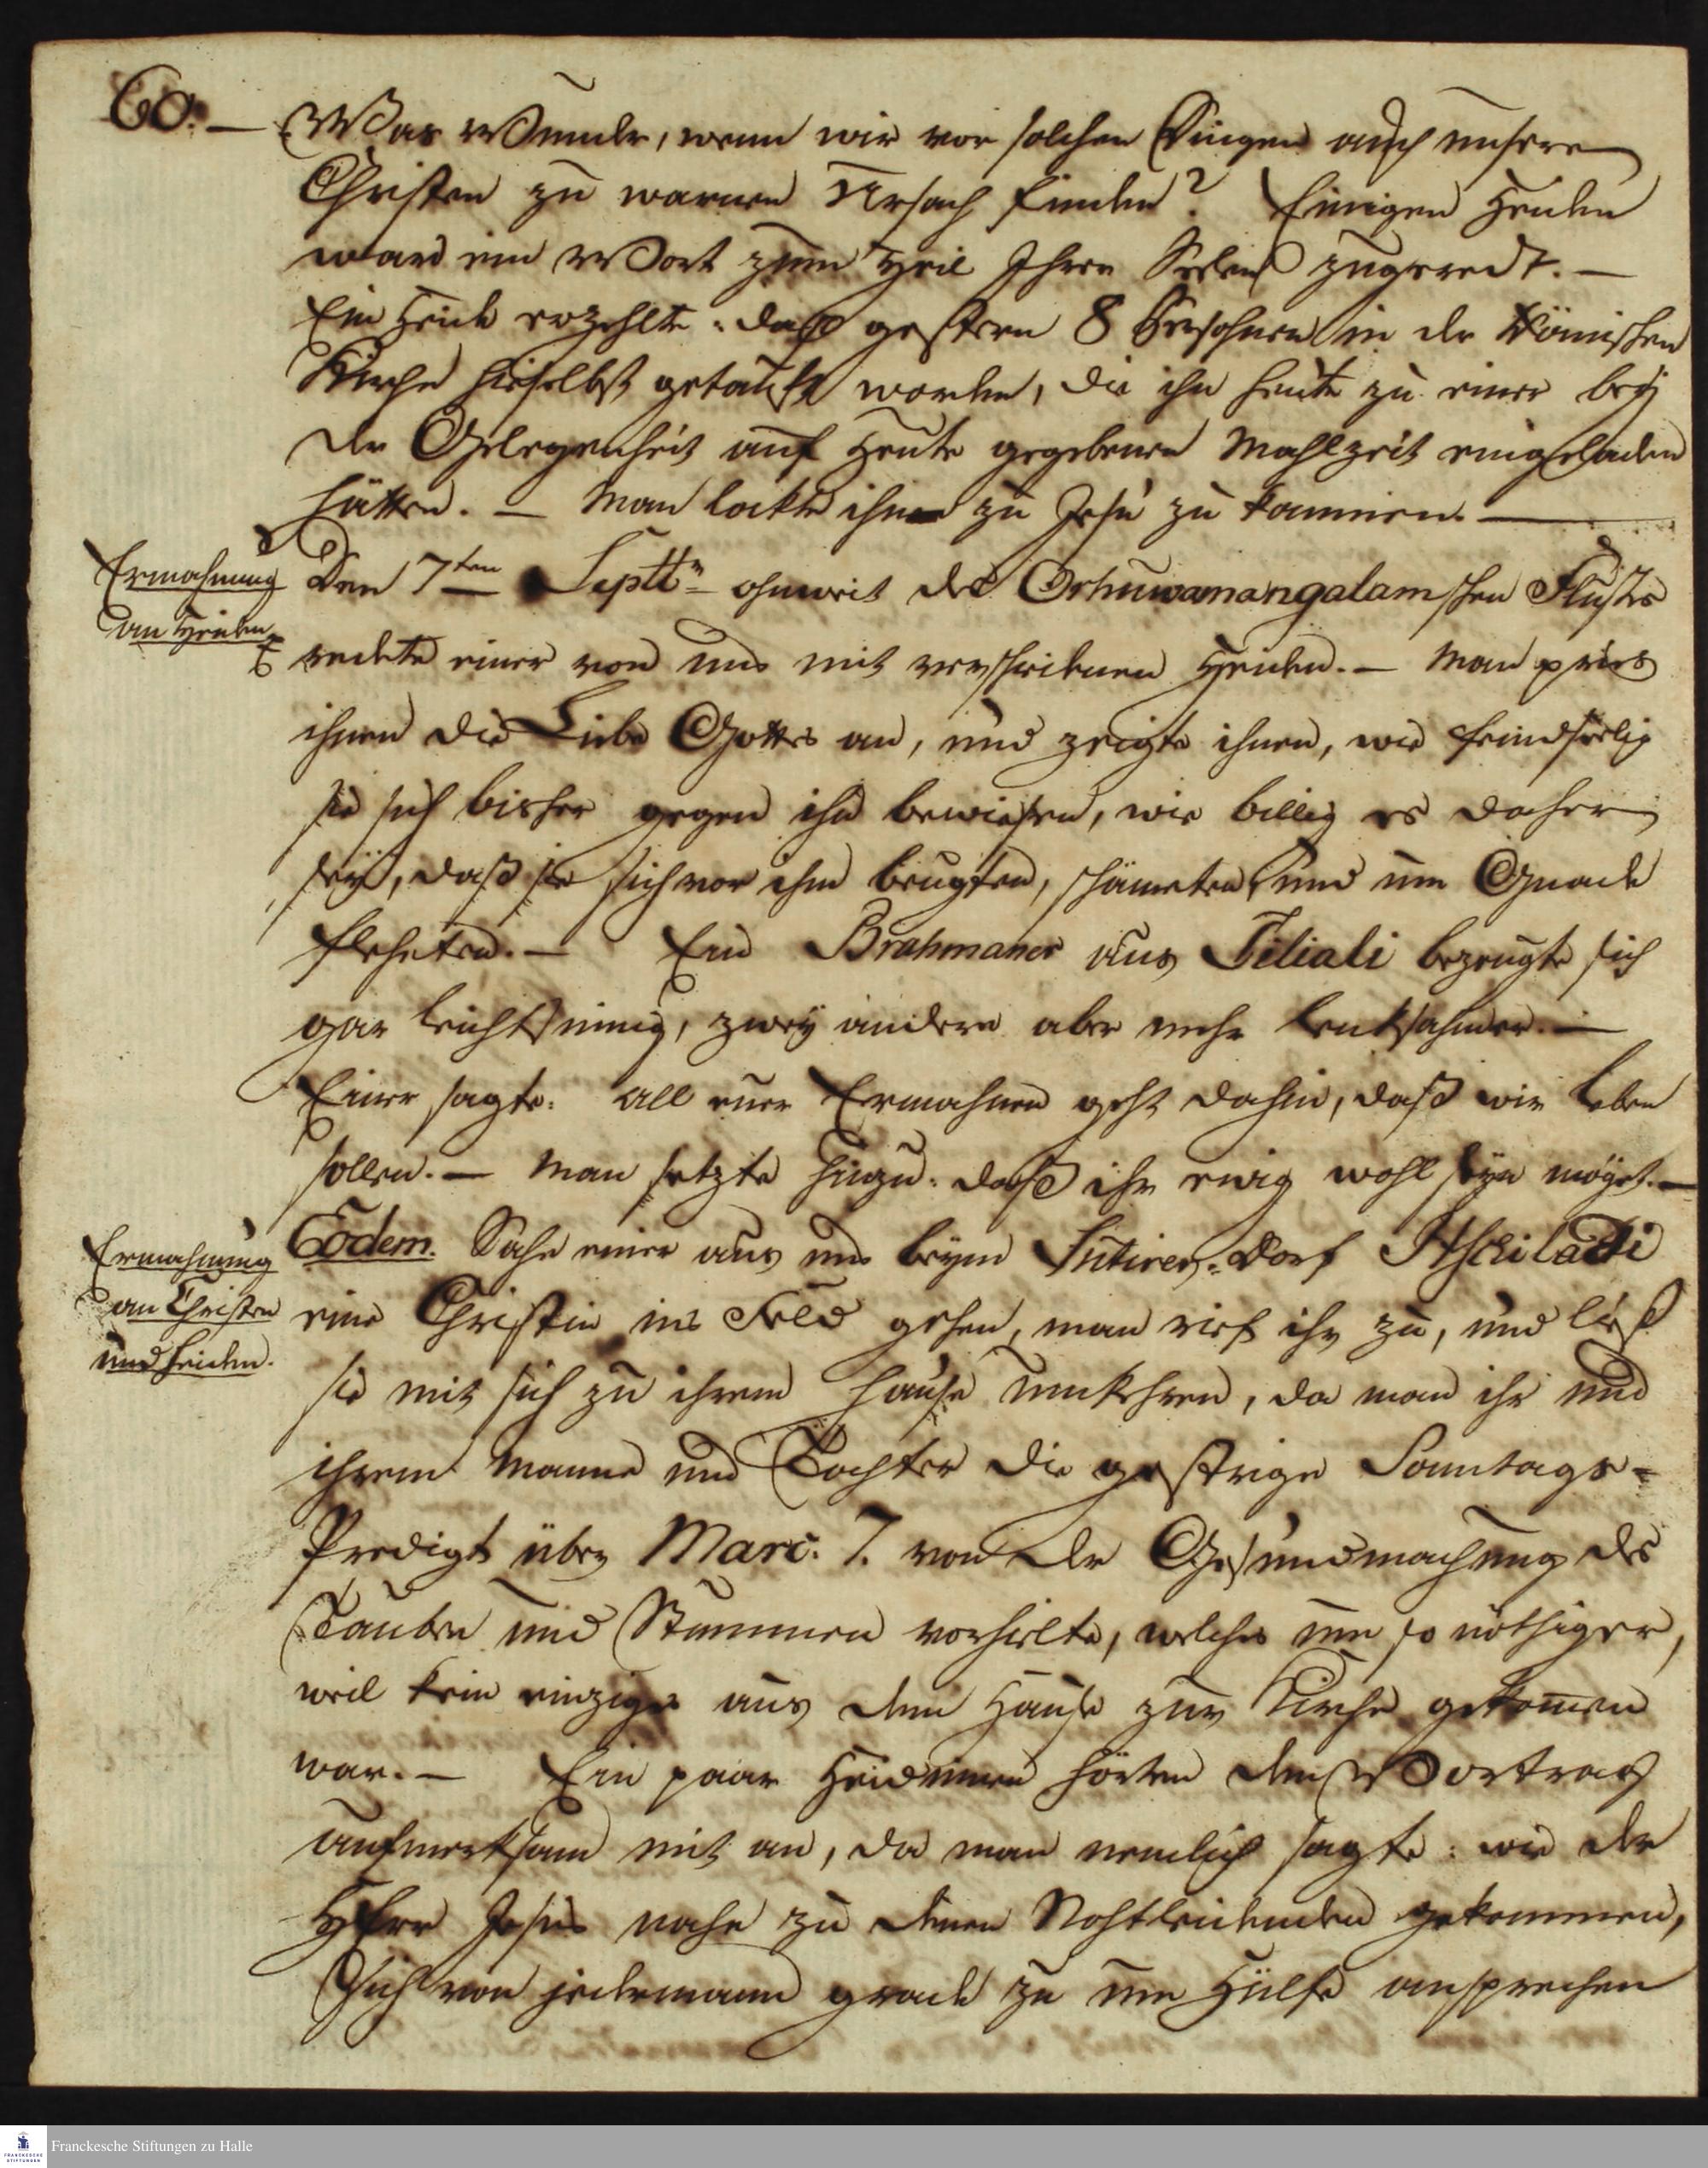 60. — Was Wunder, wenn wir vor solchen Dingen auch unsere
Christen zu warnen Ursach finden? Einigen Heiden
ward ein Wort zum Heil Ihrer Seelen zugeredt. —
Ein Heide erzehlte: daß gestern 8 Persohnen in der Römischen
Kirche hieselbst getauft worden, die ihn heute zu einer bey
der Gelegenheit auf Heute gegebenen Mahlzeit eingeladen
hätten. — Man lockte ihn zu Jesu zu kommen. —
Ermahnung
an Heiden
Den 7ten Septtr ohnweit des Orhuwanangalamschen Flußes
redete einer von uns mit verschiedenen Heiden. — Man pries
ihnen die Liebe Gottes an, und zeigte ihnen, wie feindseelig
sie sich bisher gegen ihn bewiesen, wie billig es daher
sey, daß sie sich vor ihm beugten, schämeten und um Gnade
fleheten. — Ein Brahmaner aus Tiliali bezeugte sich
gar leichtsinnig, zwey andere aber mehr lenksahmer. —
Einer sagte: all euer Ermahnen geht dahin, daß wir leben
sollen. — Man setzte hinzu: daß ihr ewig wohl seyn möget. —
Ermahnung
an Christen
und Heiden.
Eodem. Sahe einer aus uns beym Sutirer-Dorf
eine Christin ins Feld gehen, man rief ihr zu, und ließ
sie mit sich zu ihrem Hause umkehren, da man ihr und
ihrem Manne und Tochter die gestrige Sonntags-
Predigt über Marc. 7. von der Gesundmachung des
Tauben und Stummen vorhielte, welches um so nöthiger,
weil kein einziger aus dem Hause zur Kirche gekom̄en
war. — Ein paar Heidinnen hörten den Vortrag
aufmerksam mit an, da man nemlich sagte: wie der
HErr Jesus nahe zu denen Nohtleidenden gekommen,
Sich von jedermann grade zu um Hülfe ansprechen
Franckesche Stiftungen zu Halle